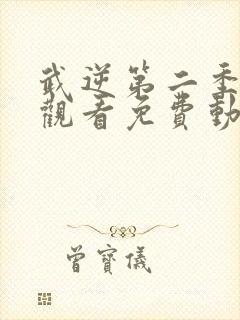 武逆第二季
觀看免費動
曾寶儀